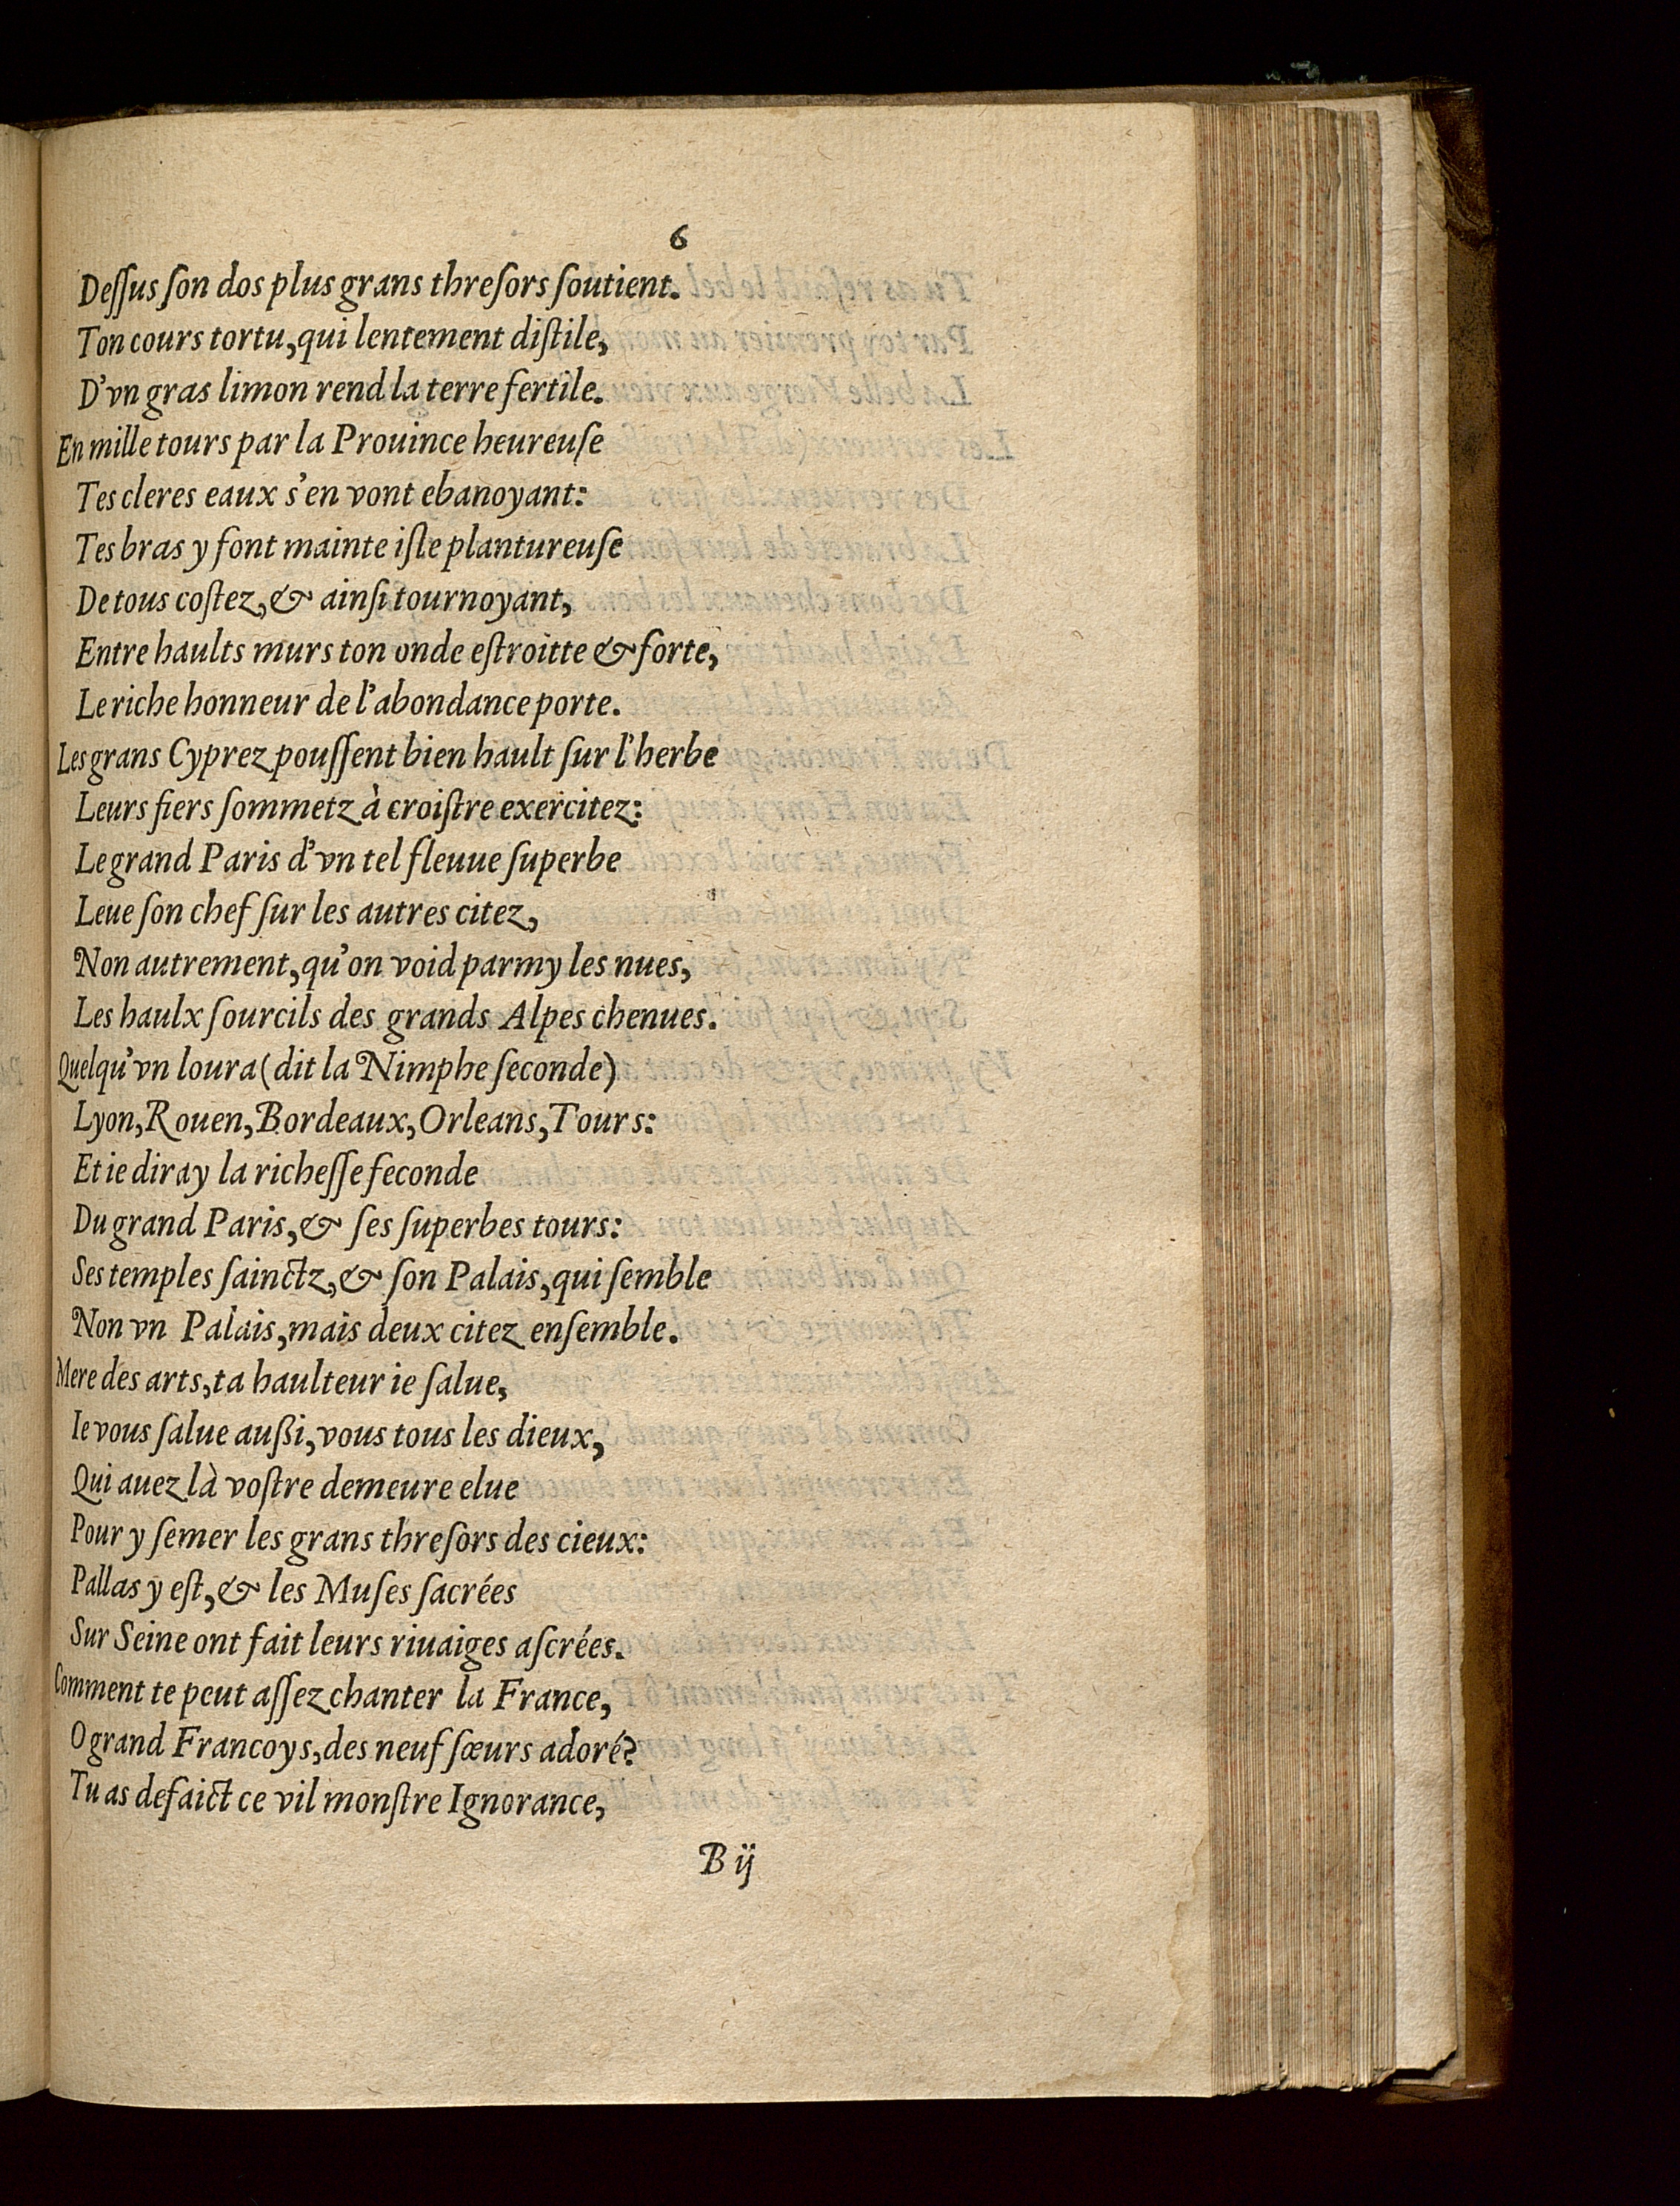 6
Deſſus ſon dos plus grans threſors ſoutient.
Ton cours tortu, qui lentement diſtile,
D'vn gras limon rend la terre fertile.
En mille tours par la Prouince heureuſe
Tes cleres eaux s'en vont ebanoyant:
Tes bras y font mainte iſle plantureuſe
De tous coſtez, & ainſi tournoyant,
Entre haults murs ton onde eſtroitte & forte,
Le riche honneur de l'abondance porte.
Les grans Cyprez pouſſent bien hault ſur l'herbe
Leurs fiers ſommetz à croiſtre exercitez:
Le grand Paris d'vn tel fleuue ſuperbe
Leue ſon chef ſur les autres citez,
Non autrement, qu'on void parmy les nues,
Les haulx ſourcils des grands Alpes chenues.
Quelqu'vn loura (dit la Nimphe ſeconde)
Lyon, Rouen, Bordeaux, Orleans, Tours:
Et ie diray la richeſſe feconde
Du grand Paris, & ſes ſuperbes tours:
Ses temples ſainctz, & ſon Palais, qui ſemble
Non vn Palais, mais deux citez enſemble.
Mere des arts, ta haulteur ie ſalue,
Ie vous ſalue außi, vous tous les dieux,
Qui auez là voſtre demeure elue
Pour y ſemer les grans threſors des cieux:
Pallas y eſt, & les Muſes ſacrées
Sur Seine ont fait leurs riuaiges aſcrées.
Comment te peut aſſez chanter la France,
O grand Francoys, des neuf ſœurs adoré?
Tu as defaict ce vil monſtre Ignorance,
B ij